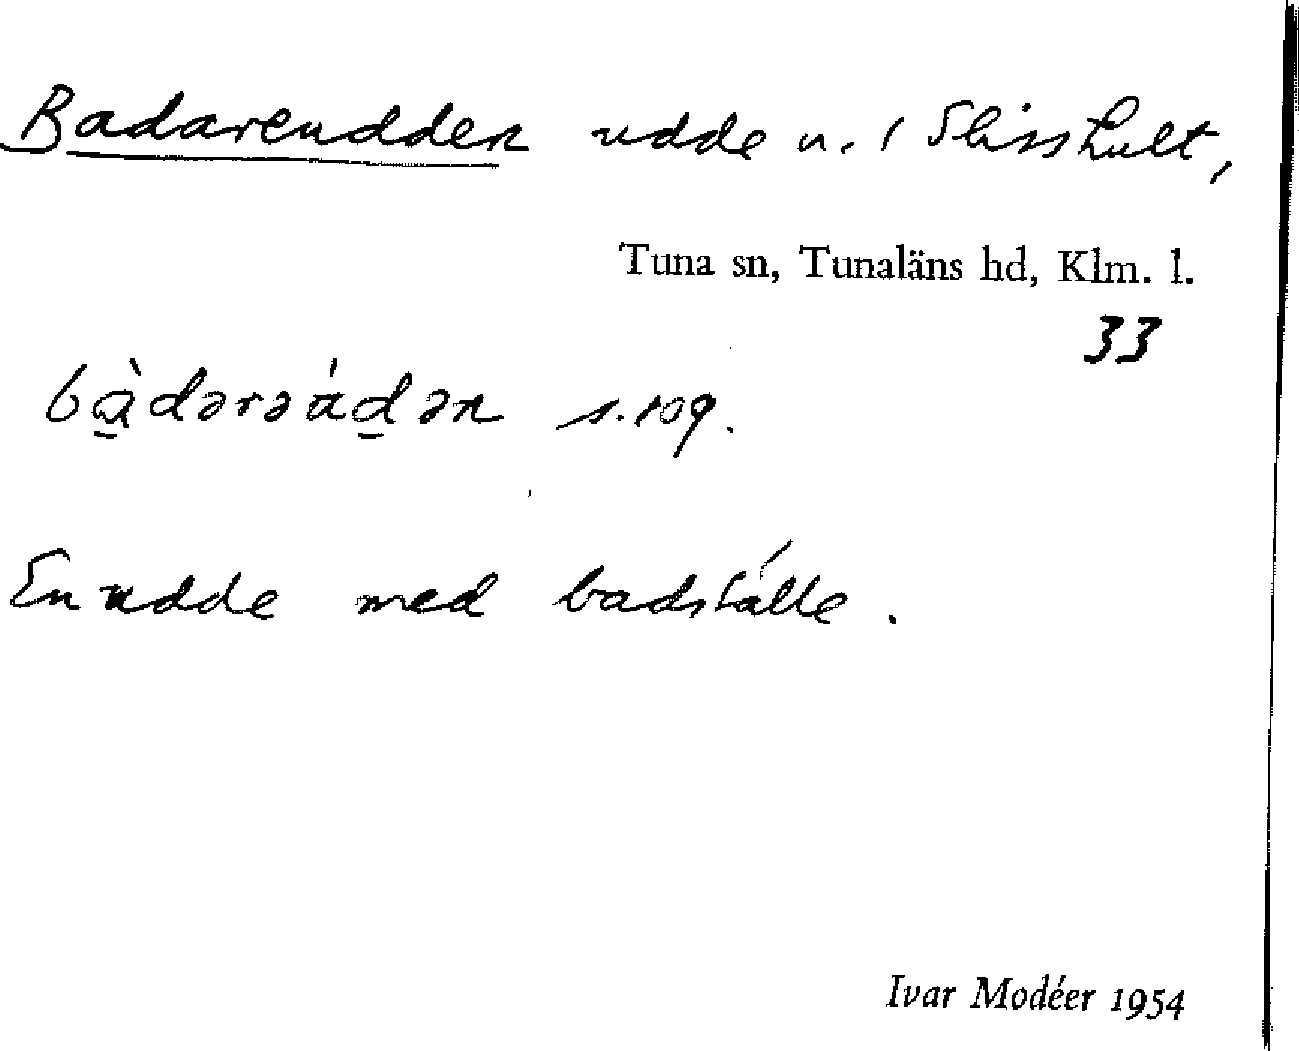 Badareudden udde n. i Slisshult,
Tuna sn, Tunaläns hd, Klm. l.
33
bà̱dərəáḏən s. 109.
En udde med badställe.
Ivar Modéer 1954